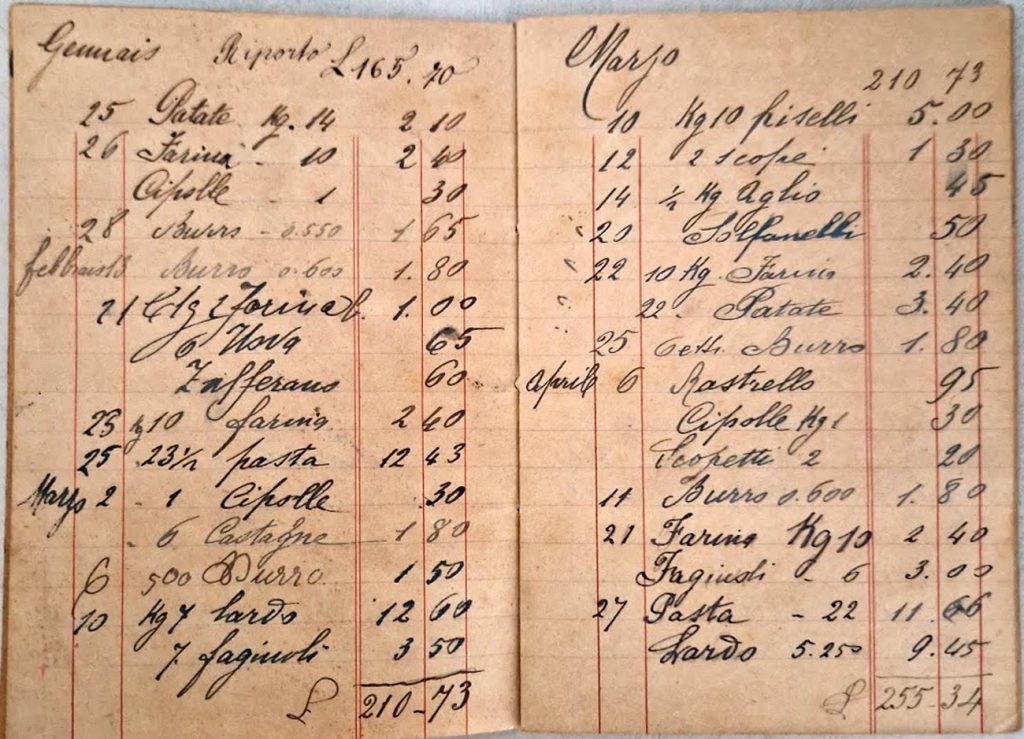 Gennaio Riporto L 165.70
25 Patate Kg. 14 2 10
26 Farina - 10 2 40
Cipolle - 1 30
28 Burro - 0.550 1 65
febbraio 13 Burro 0.600 1.80
21 Kg 2 farina b. 1.00
6 Uova 65
Zafferano 60
23 Kg 10 farina 2 40
25 23 1/2 pasta 12 43
Marzo 2 - 1 Cipolle .30
- 6 Castagne 1 80
6 500 Burro 1 50
10 Kg 7 lardo 12 60
7. fagiuoli 3 50
L 210-73
Marzo 210 73
10 Kg 10 piselli 5.00
12 2 scope 1 30
14 ½ Kg Aglio 45
20 Solfanelli 50
22 10 Kg. Farina 2.40
22- Patate 3.40
25 6 etti Burro 1.80
Aprile 6 Rastrello 95
Cipolle Kg 1 30
Scopetti 2 20
14 Burro 0.600 1.80
21 Farina Kg 10 2 40
Fagiuoli - 6 3.00
27 Pasta - 22 11.66
Lardo 5.250 9.45
L 255-34